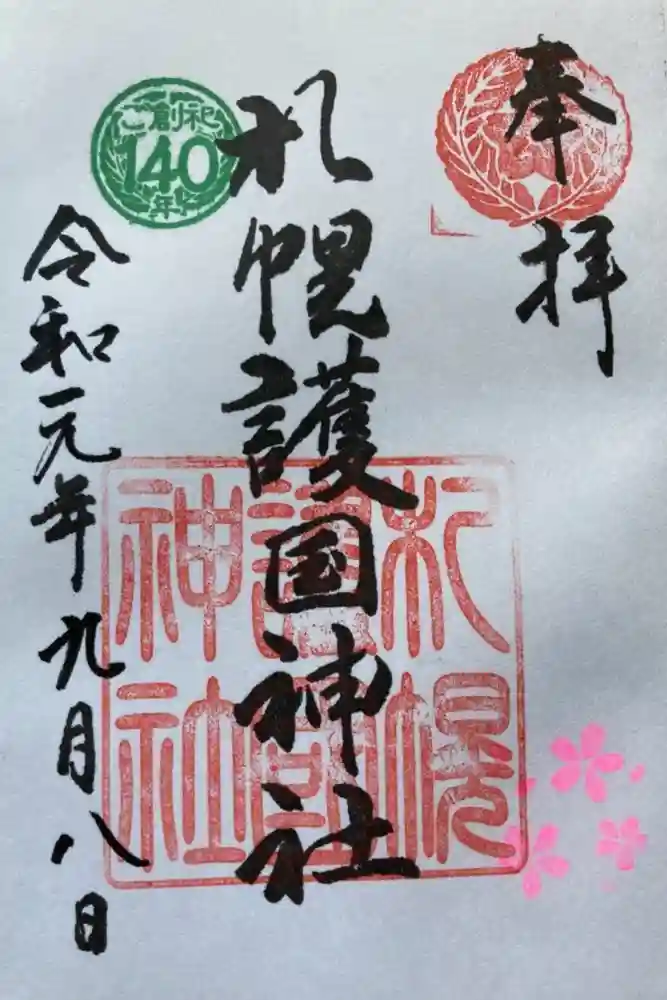 奉拝
札幌護国神社
札幌護国神社
ご創祀
140
年
令和元年九月八日